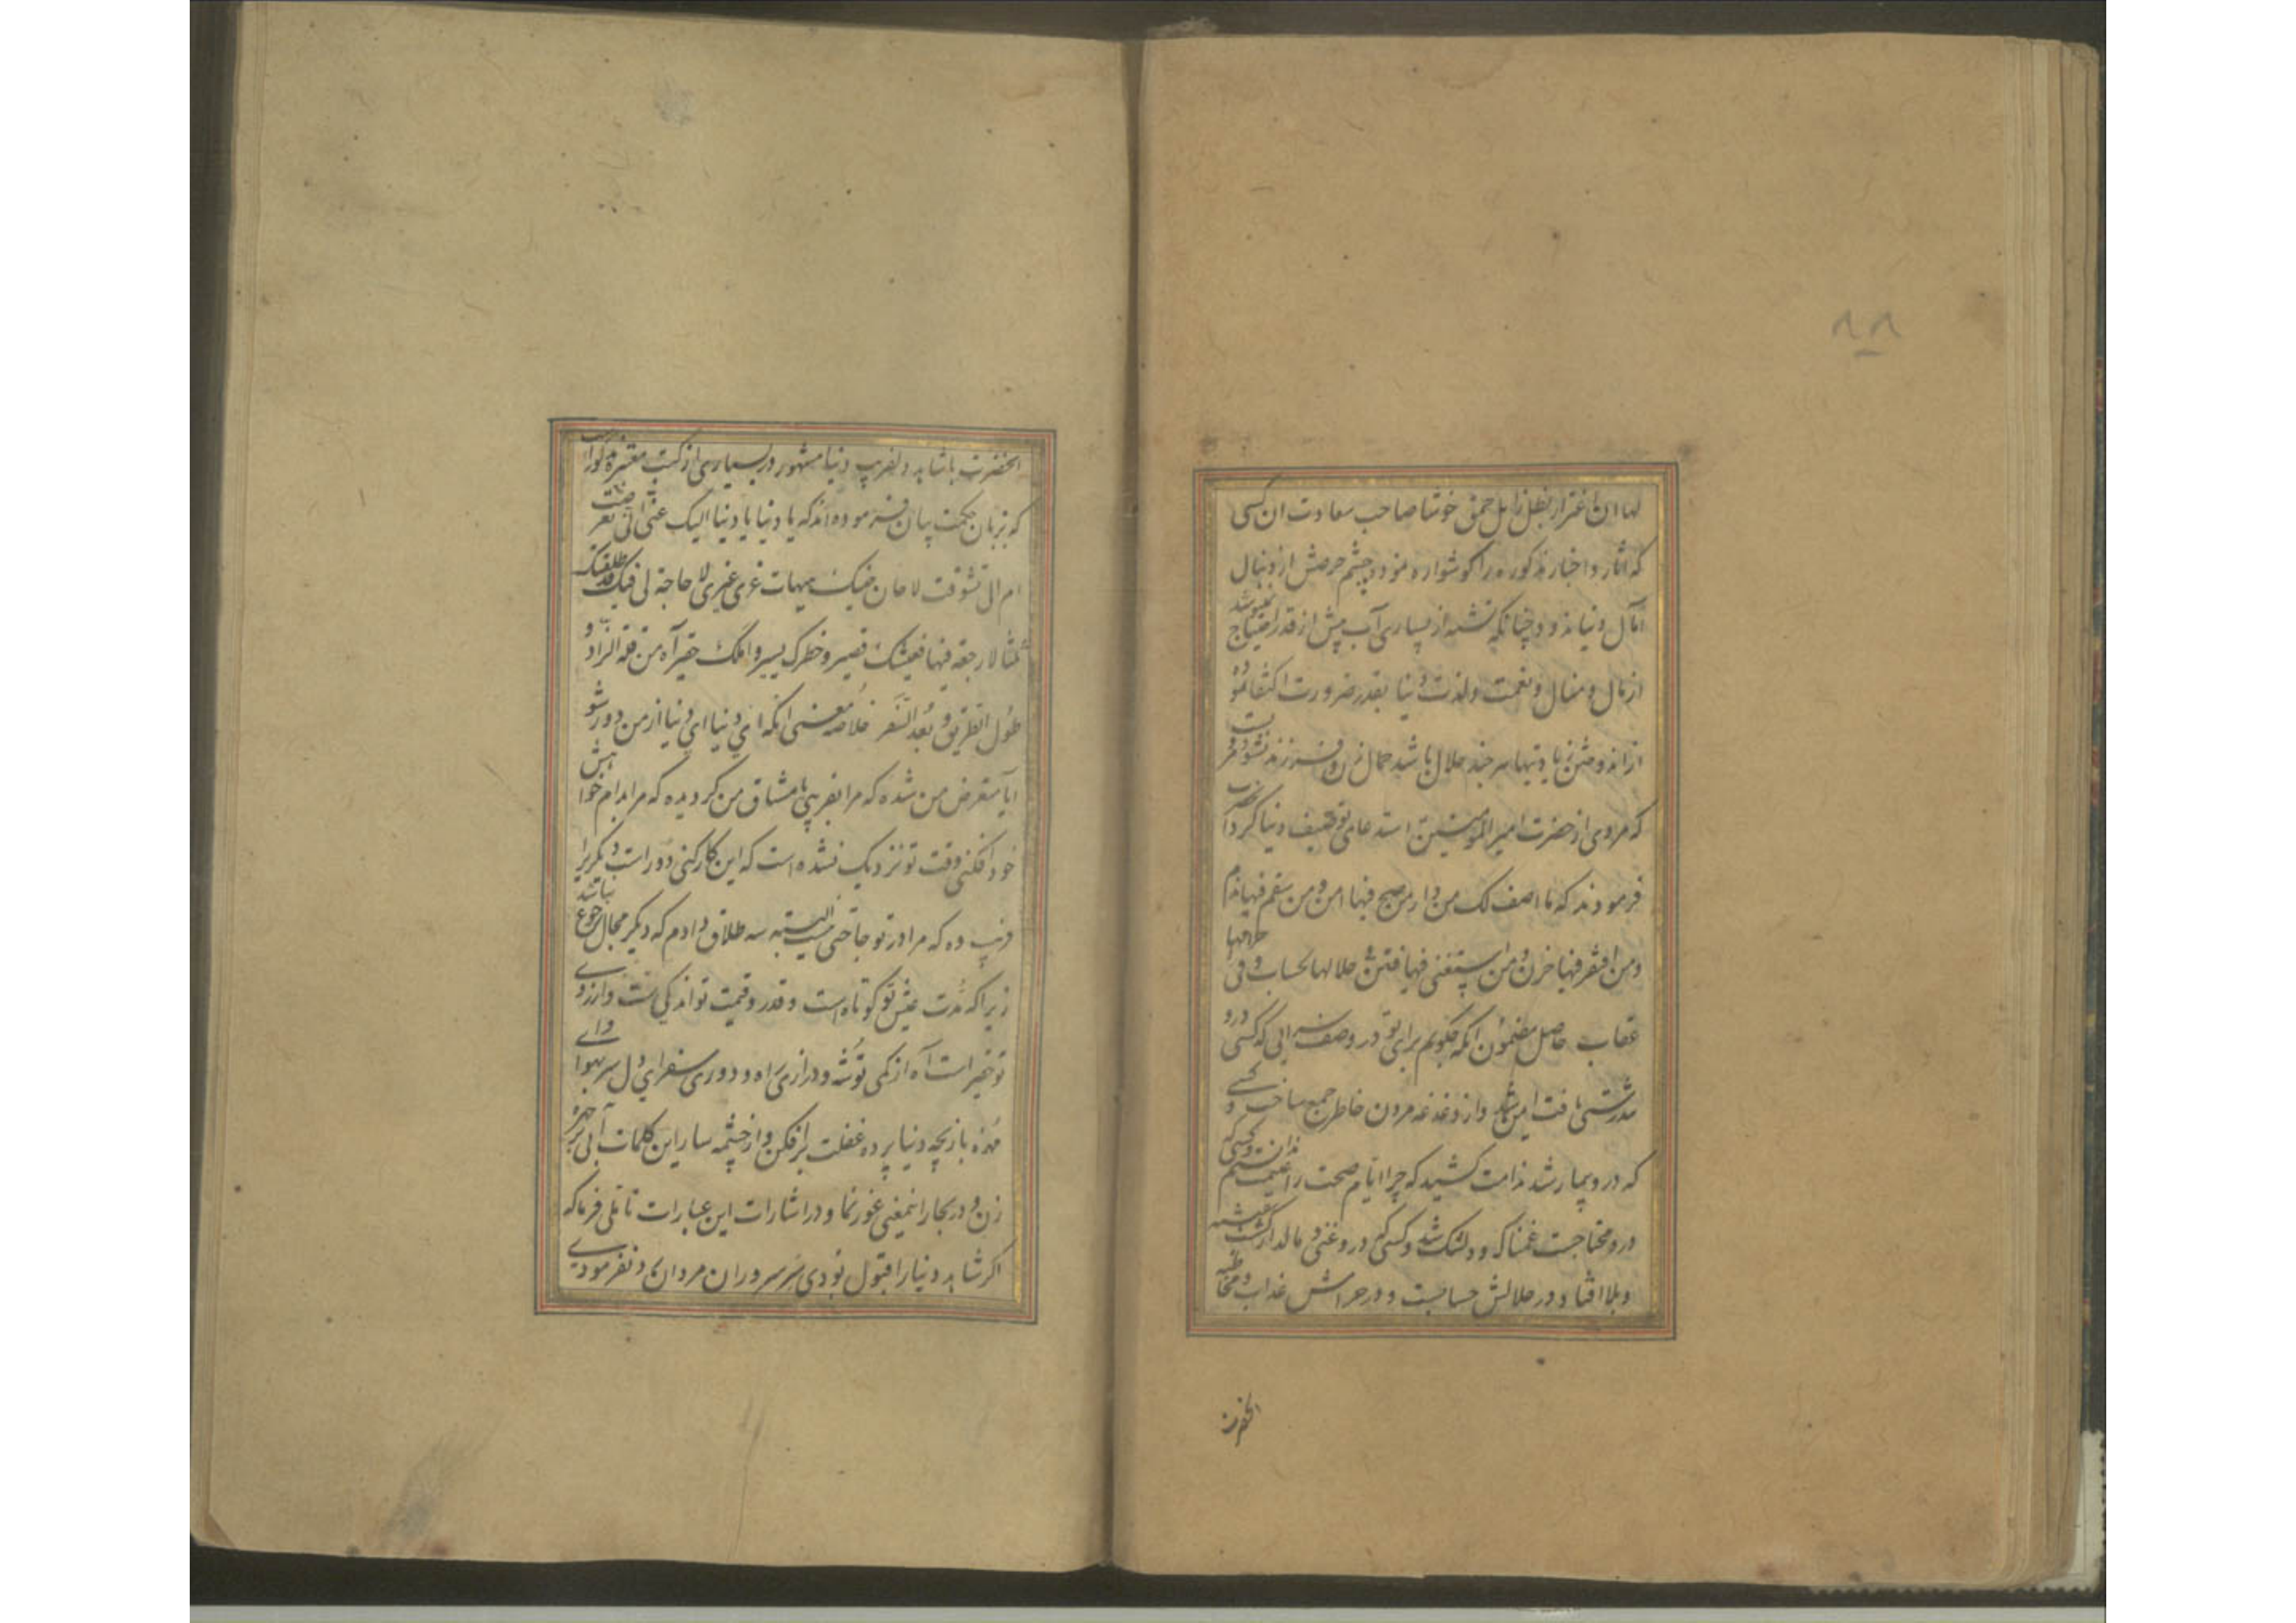 ۸۸
لها ان اغترار بظل زایل حمق خوشا صاحب سعادت ان کسی
که اثار و اخبار مذکوره را کوشواره نموده چشم حرصش از دنبال
آمال دنیا ندود چنانکه تشنه از بسیاری آب بیش از قدر احتیاج ننوشد
از مال و منال و نعمت و لذت دنیا بقدر ضرورت اکتفا نموده
از اندوختن زیادتیها هر چند حلال باشد حمال زن و فرزند نشود
که مردی از حضرت امیر المومنین استدعای توصیف دنیا کرد آنحضرت
فرمودند که ما اصف لک من دار من صح فیها امن و من سقم فیها ندم
و من افتقر فیها حزن و من استغنی فیها فتن فی حلالها الحساب و فی حرامها
عقاب حاصل مضمون انکه چکویم برای تو در وصف سرایی که کسی درو
تندرستی یافت ایمن شد و از دغدغه مردن خاطر جمع ساخت و کسی
که درو بیمار شد ندامت کشید که چرا ایام صحت را غنیمت ندانستم و کسی که
درو محتاجست غمناک و دلتنک شد و کسی که درو غنی و مالدار کشت بفتنه
و بلا افتاد و در حلالش حسابست و در حرامش عذاب و مخاطبه
انحضرت
انحضرت با شاهد دلفریب دنیا مشهور در بسیاری از کتب معتبره مذکور است
که بزبان حکمت بیان فرموده اند که یا دنیا یا دنیا الیک عنی ابی تعرضت
ام الی تشوقت لا حان حینک هیهات غری غیری لا حاجة لی فیک قد طلقتک
ثلثا لا رجعة فیها فعیشک قصیر و خطرک یسیر و املک حقیر آه من قلة الزاد و
طول الطریق و بعد السفر خلاصه معنی انکه ای دنیا ای دنیا از من دور شو
آیا متعرض من شده که مرا بفریبی یا مشتاق من کردیده که مرا بدام خواهش
خود افکنی وقت تو نزدیک نشده است که این کار کنی دور است دیکریرا
فریب ده که مرا در تو حاجتی نیست البته سه طلاق دادم که دیکر مجال رجوع نباشد
زیرا که مدت عیش تو کوتاه است و قدر و قیمت تو اندکی است و ارزوی
تو حقیر است آه از کمی توشه و درازی راه و دوری سفر ای دل سر بهوا
هرزه بازیچه دنیا پرده غفلت برافکن و از چشمه سار این کلمات آبی بر چهره
زن و در بحار انمعنی غور نما و در اشارات این عبارات تاملی فرما که
اکر شاهد دنیا را قبول بودی سر سروران مردان رد نفرمودی